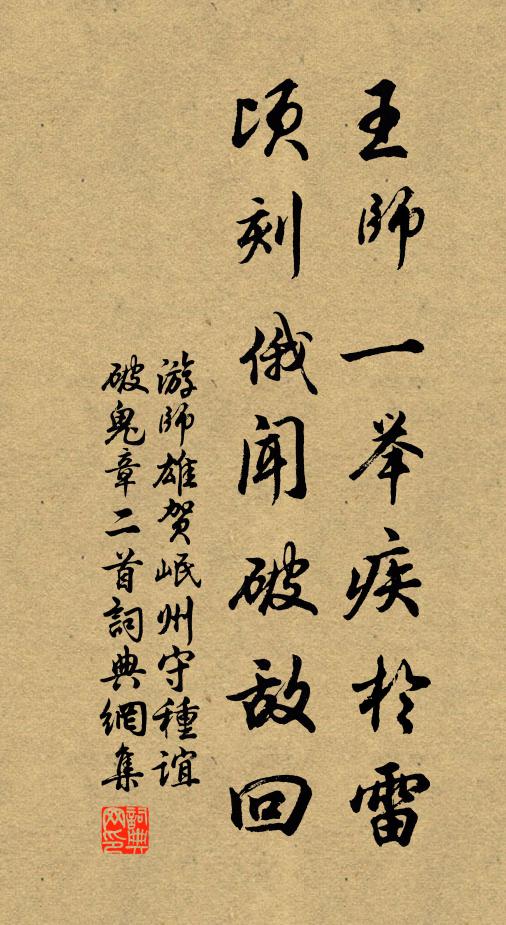 王師一举疾於雷
頃刻俄闻破敌回
游師雄贺岷州守種谊
破鬼章二首詞典網集
詞典
网印